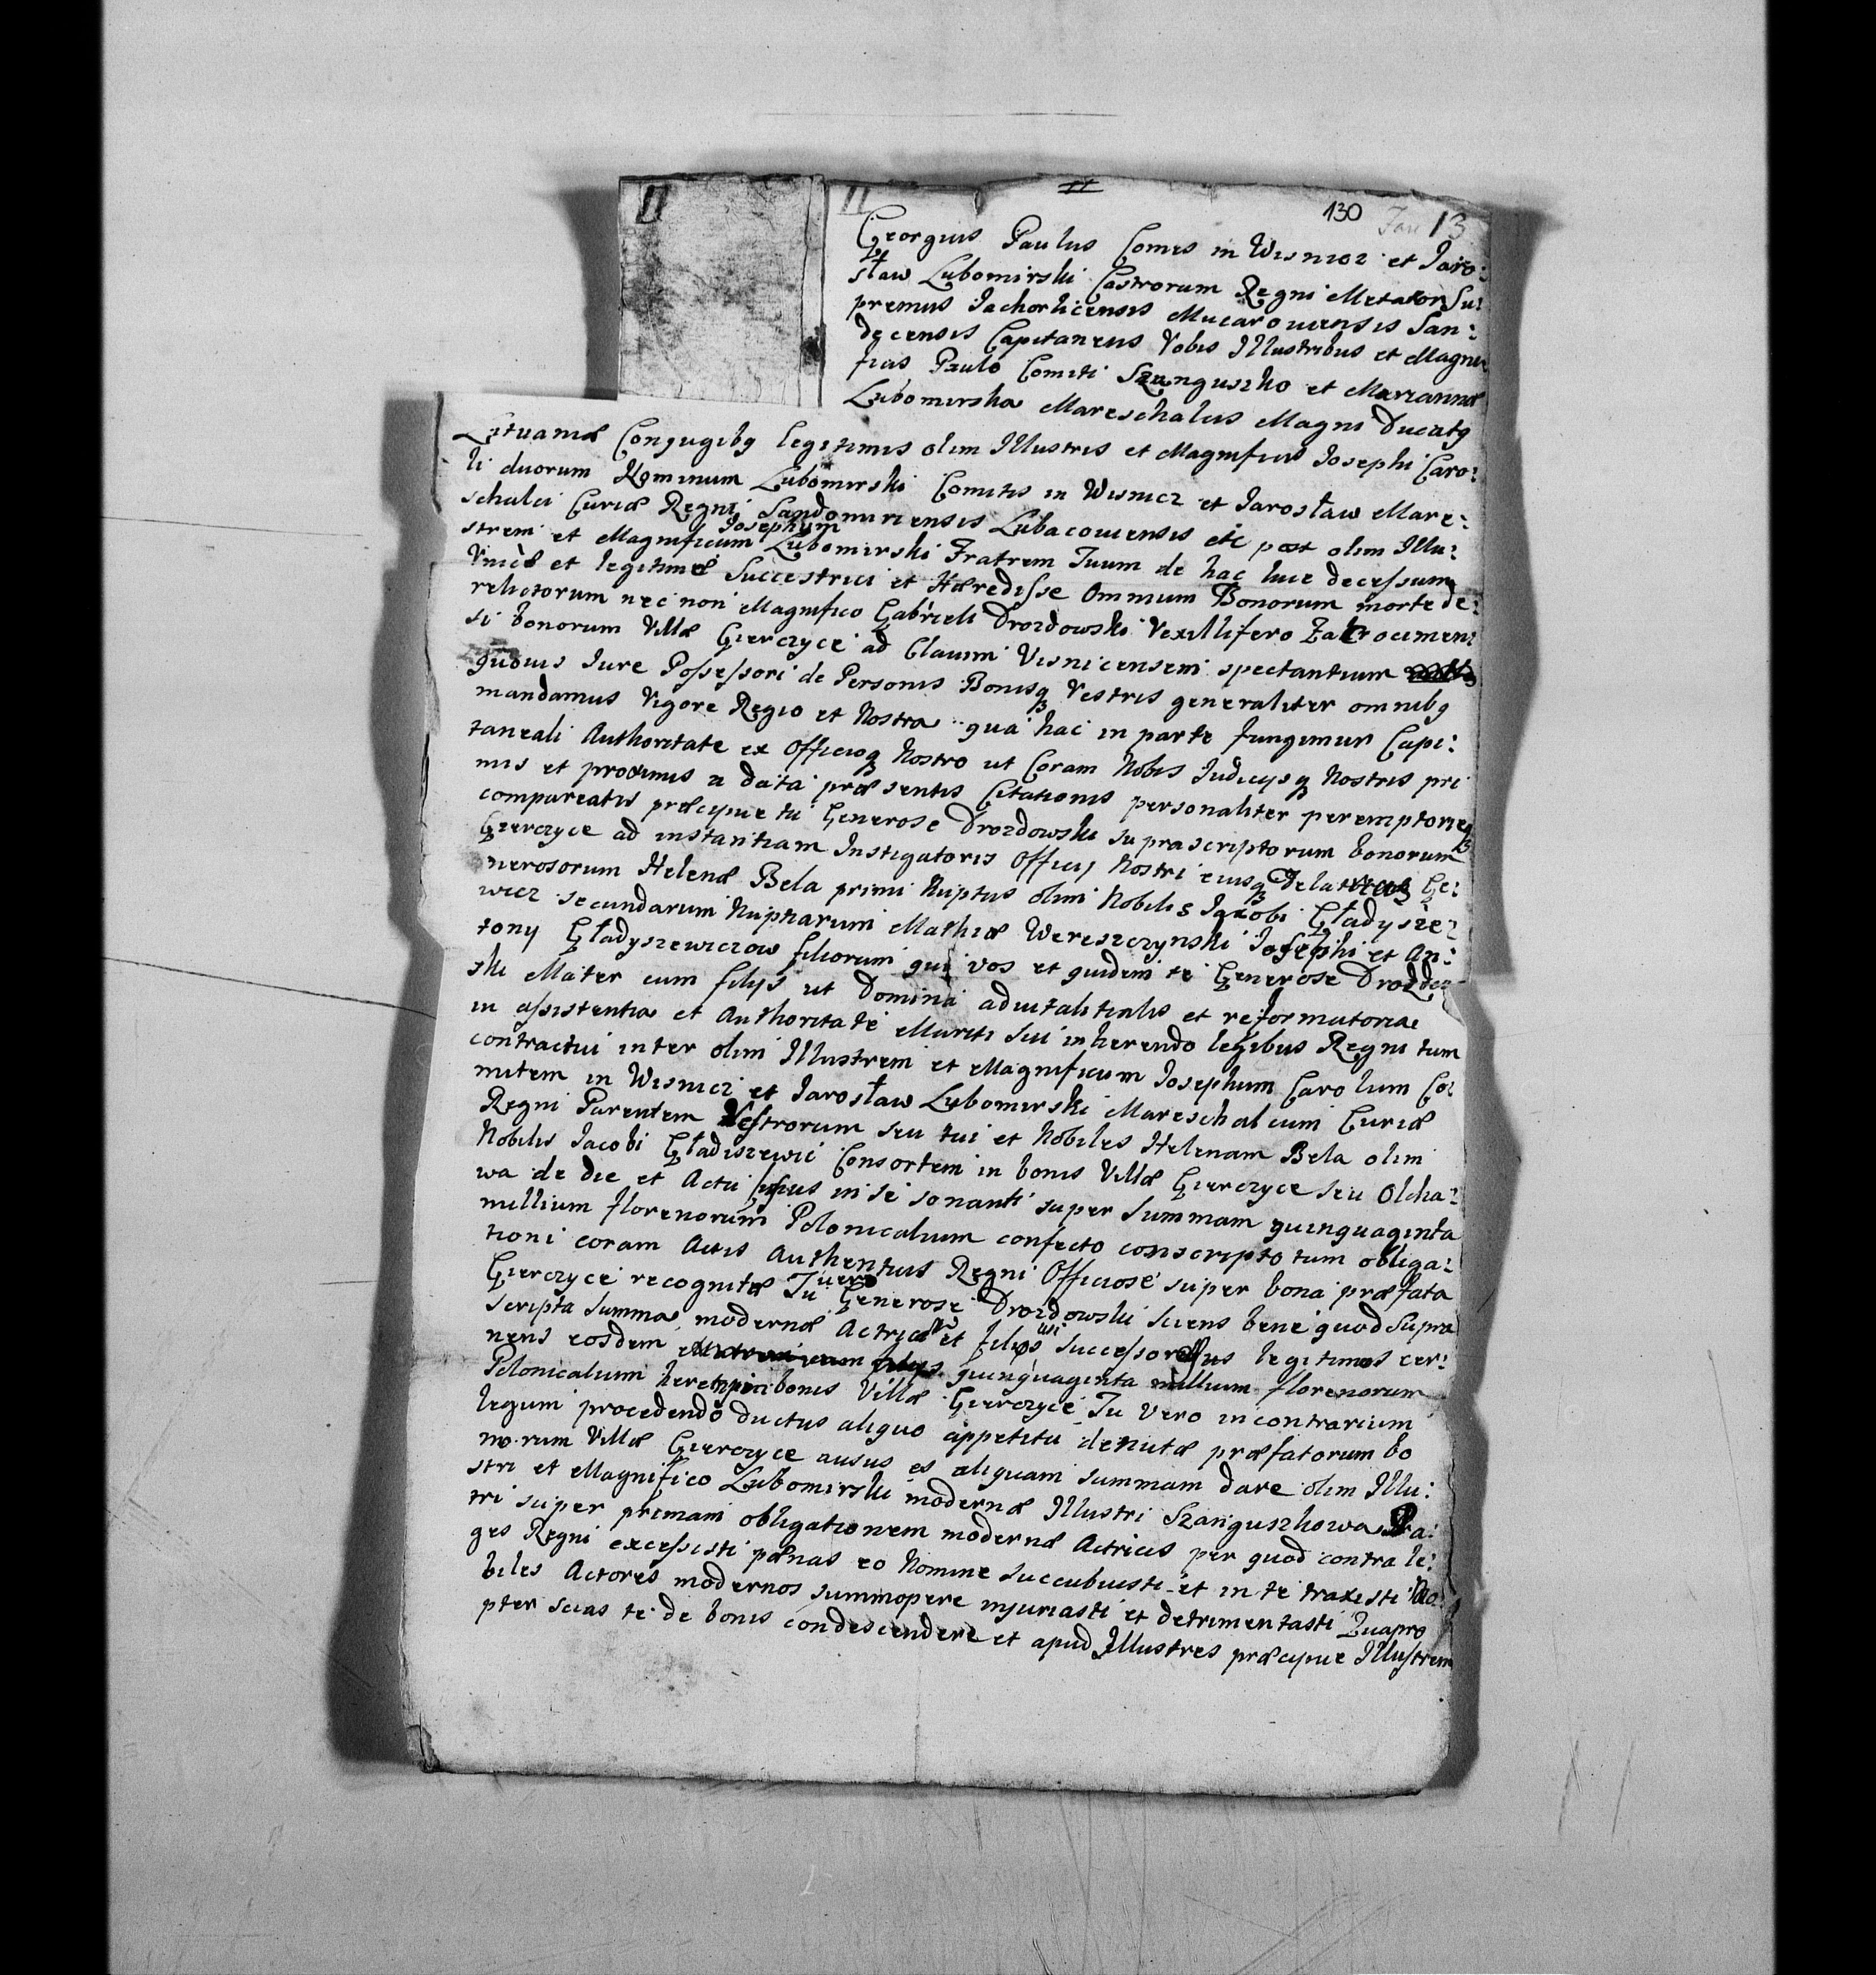 11
11
130
13
Georgius Paulus Comes in Wisnicz et Jaro:
sław Lubomirski Castrorum Regni Metator Su:
premus Jachorlicensis Mucarouiensis San:
decensis Capitaneus Vobis Illustribus et Magni
ficis Paulo Comiti Szanguszko et Mariannæ
Lubomirska Mareschalus Magni Ducatq
Lituaniæ Conjugibq legitimis olim Illustris et Magnificis Josephi Caro:
li duorum Nominum Lubomirski Comitis in Wisnicz et Jarosław Mare:
schalci Curiæ Regni Sandomiriensis Lubacouiensis etc post olim Illu:
strem et Magnificum Josephum Lubomirski Fratrem Tuum de hac luce decessum
Vnicæ et legitimæ Succestrici et Hæredisse Omnium Bonorum morte de:
relictorum nec non Magnifico Gabrieli Drozdowski Vexillifero Zakrocimen:
si bonorum Villæ Gierczyce ad Clauim Visnicensem spectantium
quouis Jure Possessori de Personis Bonisq Vestris generaliter omnibq
mandamus Vigore Regio et Nostra qua hac in parte fungimur Capi:
taneali Authoritate ex Officioq Nostro ut Coram Nobis Judicijsq Nostris pri
mis et proximis a data præsentis Citationis personaliter peremptorieq
compareatis præcipue tu Generose Drozdowski suprascriptorum bonorum
Gierczyce ad instantiam Instigatoris Officij Nostri eiusq Ge:
nerosorum Helenæ Bela primi Nuptus olim Nobilis Jacobi Gładysze:
wicz secundarum Nuptiarum Mathiæ Wereszczynski Josephi et An:
tony Gładyszewiczow filiorum qui vos et quidem te Generose Drozdow
ski Mater cum filijs ut Domina aduitalitialis et reformatoria
in assistentia et Authoritate Mariti Sui inherendo legibus Regni tum
contractui inter olim Illustrem et Magnificum Josephum Carolum Co:
mitem in Wisnicz et Jarosław Lubomirski Mareschalcum Curiæ
Regni Parentem Vestrorum seu tui et Nobiles Helenam Bela olim
Nobilis Jacobi Gładiszewic Consortem in bonis Villæ Gierczyce seu Olcha:
wa de die et Actu ipsius in se sonanti super Summam quinquaginta
millium florenorum Polonicalium confecto conscripto tum obliga:
tioni coram Actis Authenticis Regni Officiose super bona præfata
Gierczyce recognitæ Tu vero Generose Drozdowski sciens bene quod Supra
scripta Summa modernæ Actricis et filijs successoribus legitimos cer:
nens eosdem quinquaginta millium florenorum
Polonicalium bonis Villæ Gierczyce Tu vero in contrarium
legum procedendo ductus aliquo appetitu detinutæ præfatorum bo
norum Villæ Gierczyce ausus es aliquam summam dare olim Illu:
stri et Magnifico Lubomirski modernæ Illustri Szanguszkowa
tri super primam obligationem modernæ Actricis per quod contra le:
ges Regni excessisti pænas eo Nomine succubuisti et in te traxisti No:
biles Actores modernos summopere injuriasti et detrimentasti Quapro
pter scias te de bonis condescendere et apud Illustres præcipue Illustrem